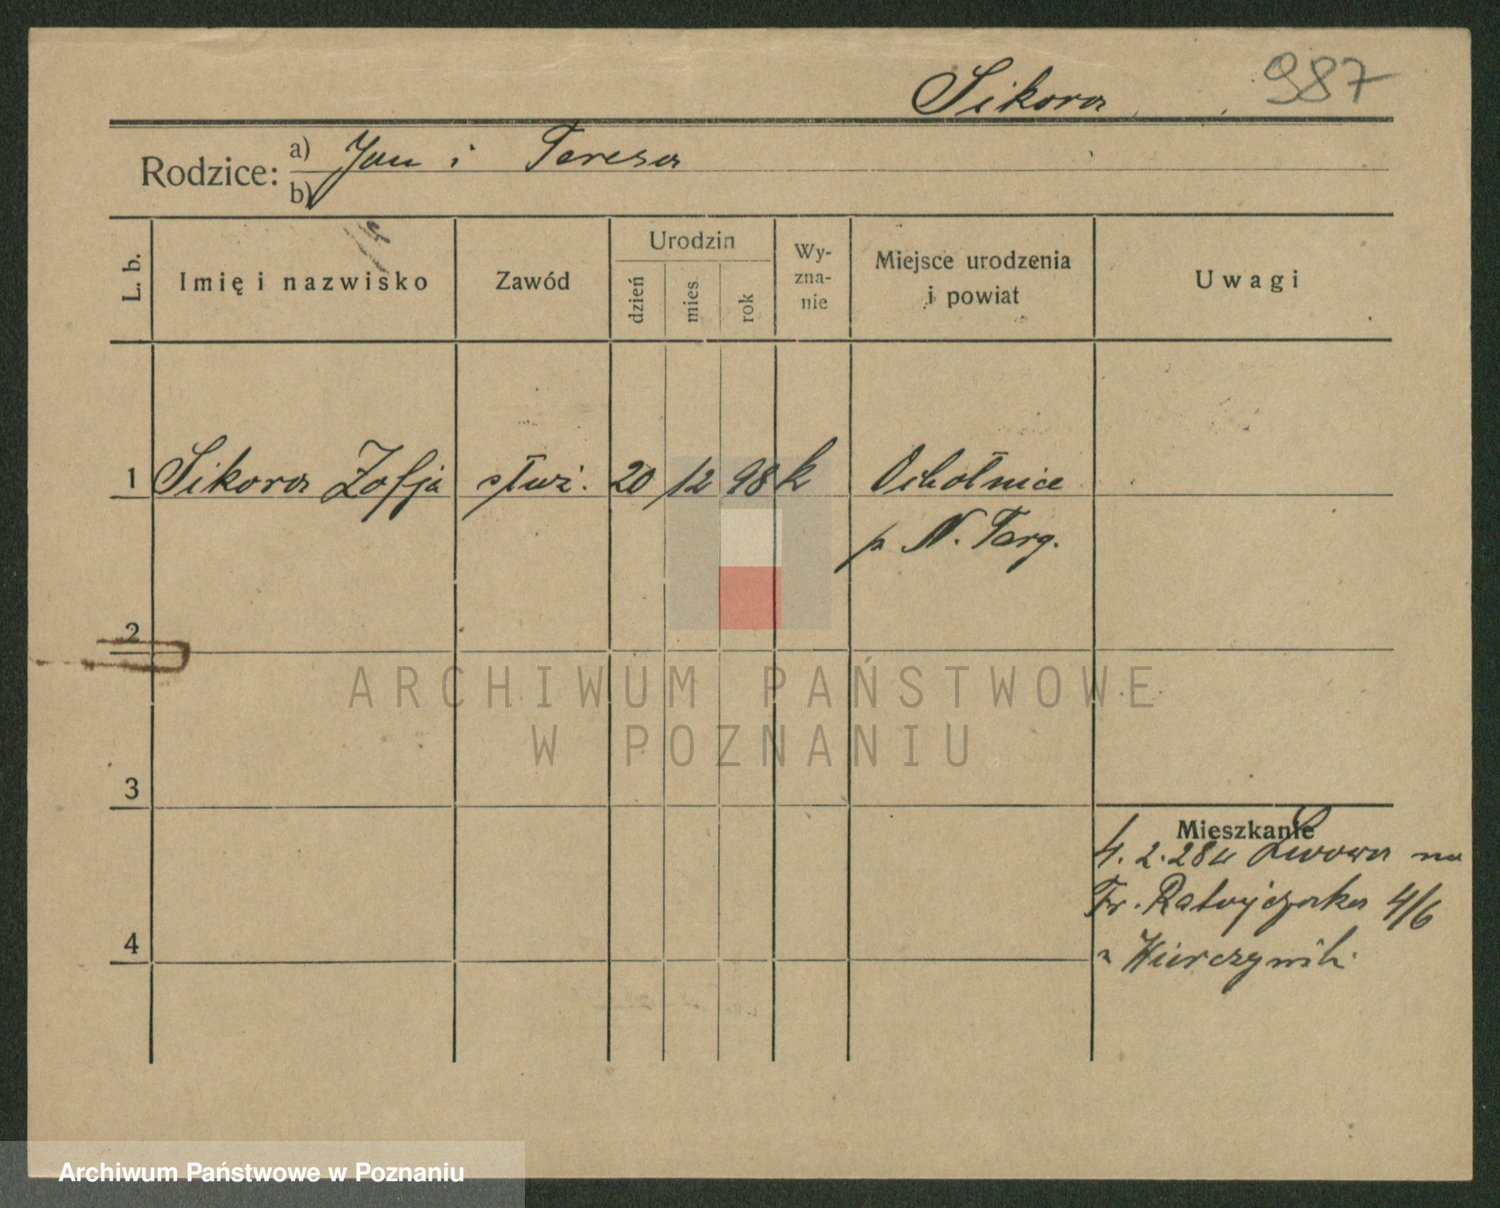 Sikora
987
Rodzice: a) Jan i Teresa
b)
L. b.
Imię i nazwisko
Zawód
Urodzin
dzień
mies.
rok
Wy-
zna-
nie
Miejsce urodzenia
i powiat
Uwagi
1 Sikora Zofja służ. 20 12 98 k Ochotnice
p. N. Targ.
2
3
4
Mieszkanie
4. 2. 28 z Lwowa na
Fr. Ratajczaka 4/6
ARCHIWUM PAŃSTWOWE
W POZNANIU
Archiwum Państwowe w Poznaniu